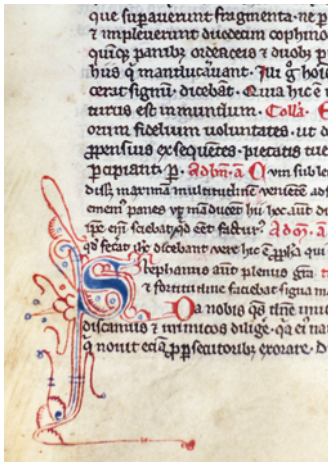 que supauerunt fragmenta· ne p
⁊ impleuerunt duodecim cophino
quinq; panib; ordeaceis ⁊ duob; p
hiis q̄ manducauant· Illi g̊ hoī
cerat signū· dicebāt· Quia hic ē
turus est in mundum· Coll̄a· E
orum fidelium uoluntates· ut d
ꝓpensius exsequētes· pietatis tue
ꝑcipiant· ꝑ· ad bn̄· a͞ Cum suble
maxima multitudinē uenietē ad
panes ut māducēt hii hoc aut̄ d
ipe eni sciebat qd eet factur᷒· ad bn̄· a͞
qd fecat ihc dicebant uere hic ē ꝓpha qui
Stephanus aut̄ plenus gr̄a
⁊ fortitudine faciebat signa m
Da nobis q̄s dn̄e imit
discamus ⁊ inimicos dilige· qa ei na
q̄ nouit eciā ꝓ ꝑsecutorib; exorare· D